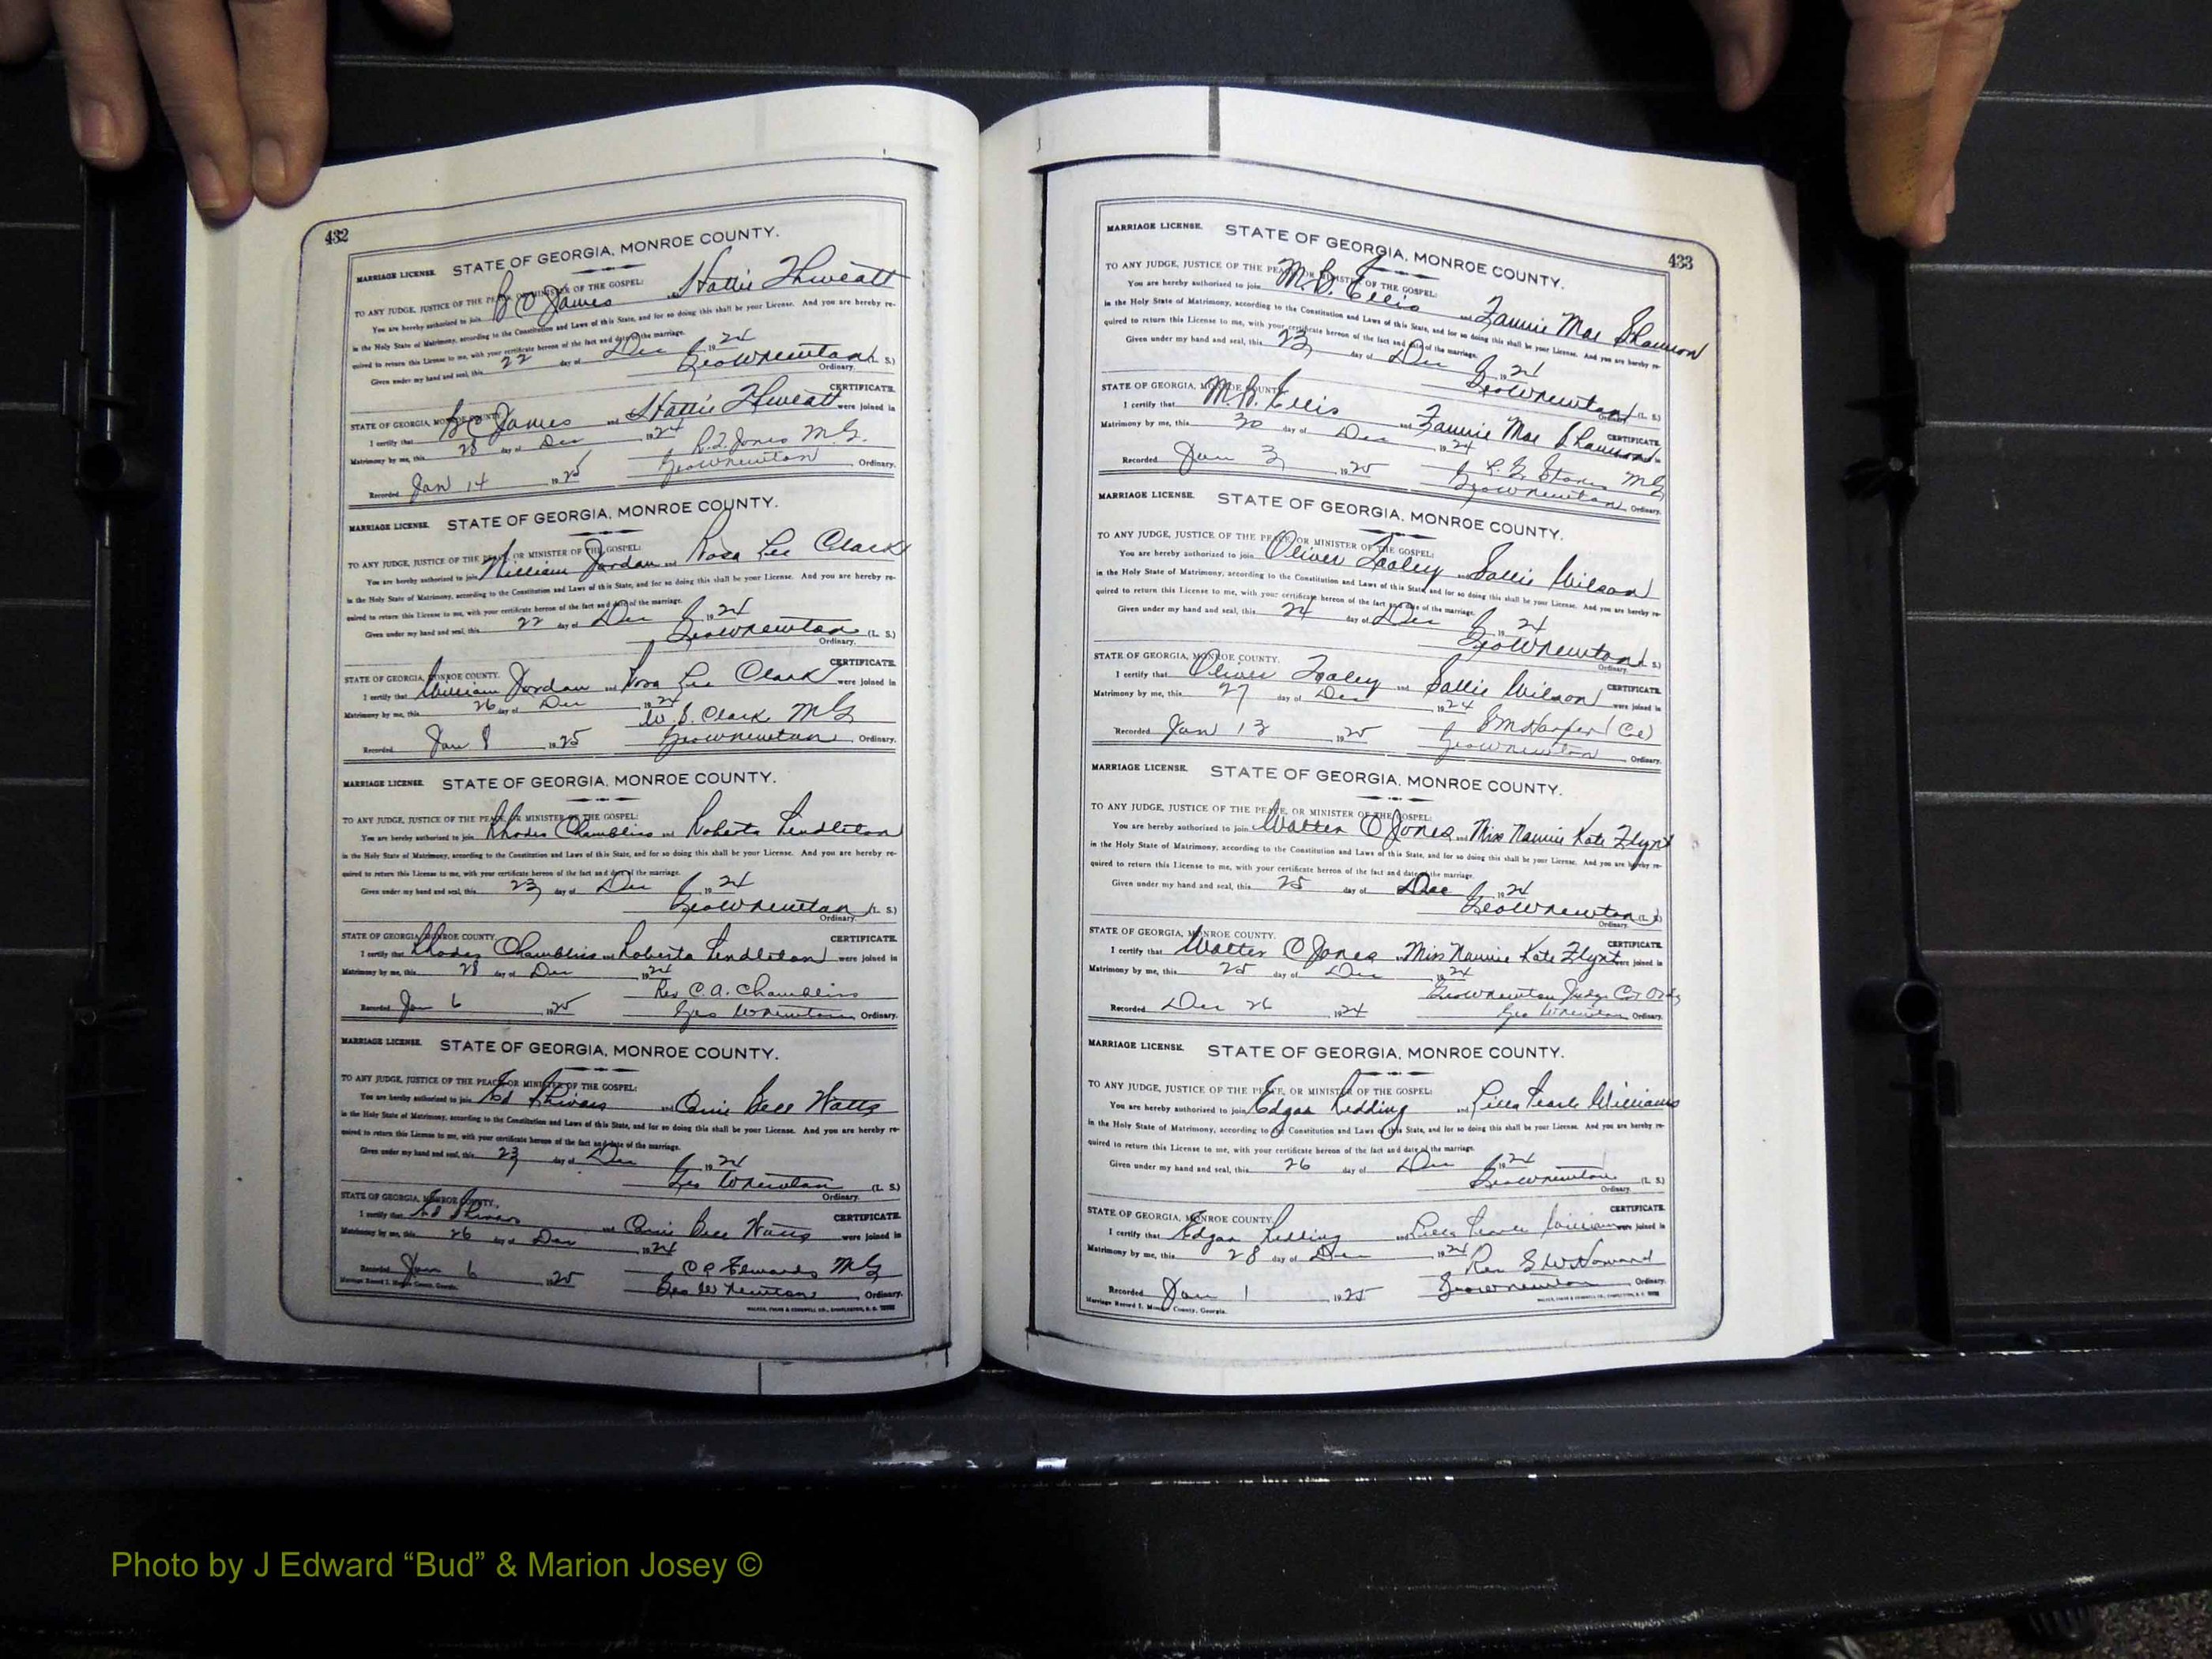 432
MARRIAGE LICENSE. STATE OF GEORGIA, MONROE COUNTY.
TO ANY JUDGE, JUSTICE OF THE PEACE, OR MINISTER OF THE GOSPEL:
You are hereby authorized to join B C James and Hattie Thweatt
in the Holy State of Matrimony, according to the Constitution and Laws of this State, and for so doing this shall be your License. And you are hereby re-
quired to return this License to me, with your certificate hereon of the fact and date of the marriage.
Given under my hand and seal, this 22 day of Dec 1924
Geo W Newton (L. S.)
Ordinary.
CERTIFICATE.
STATE OF GEORGIA, MONROE COUNTY.
I certify that B C James and Hattie Thweatt were joined in
Matrimony by me, this 28 day of Dec 1924
R. L. Jones M. G.
Recorded Jan 14 1925 Geo W Newton Ordinary.
MARRIAGE LICENSE. STATE OF GEORGIA, MONROE COUNTY.
TO ANY JUDGE, JUSTICE OF THE PEACE, OR MINISTER OF THE GOSPEL:
You are hereby authorized to join William Jordan and Rosa Lee Clark
in the Holy State of Matrimony, according to the Constitution and Laws of this State, and for so doing this shall be your License. And you are hereby re-
quired to return this License to me, with your certificate hereon of the fact and date of the marriage.
Given under my hand and seal, this 22 day of Dec 1924
Geo W Newton (L. S.)
Ordinary.
CERTIFICATE.
STATE OF GEORGIA, MONROE COUNTY.
I certify that William Jordan and Rosa Lee Clark were joined in
Matrimony by me, this 26 day of Dec 1924
W. S. Clark M G
Recorded Jan 8 1925 Geo W Newton Ordinary.
MARRIAGE LICENSE. STATE OF GEORGIA, MONROE COUNTY.
TO ANY JUDGE, JUSTICE OF THE PEACE, OR MINISTER OF THE GOSPEL:
You are hereby authorized to join Rhodes Chambliss and Roberta Pendleton
in the Holy State of Matrimony, according to the Constitution and Laws of this State, and for so doing this shall be your License. And you are hereby re-
quired to return this License to me, with your certificate hereon of the fact and date of the marriage.
Given under my hand and seal, this 23 day of Dec 1924
Geo W Newton (L. S.)
Ordinary.
STATE OF GEORGIA, MONROE COUNTY. CERTIFICATE.
I certify that Rhodes Chambliss and Roberta Pendleton were joined in
Matrimony by me, this 28 day of Dec 1924
Rev C. A. Chambliss
Recorded Jan 6 1925 Geo W Newton Ordinary.
MARRIAGE LICENSE. STATE OF GEORGIA, MONROE COUNTY.
TO ANY JUDGE, JUSTICE OF THE PEACE, OR MINISTER OF THE GOSPEL:
You are hereby authorized to join Ed Shivers and Bell Watts
in the Holy State of Matrimony, according to the Constitution and Laws of this State, and for so doing this shall be your License. And you are hereby re-
quired to return this License to me, with your certificate hereon of the fact and date of the marriage.
Given under my hand and seal, this 23 day of Dec 1924
Geo W Newton (L. S.)
Ordinary.
STATE OF GEORGIA, MONROE COUNTY. CERTIFICATE.
I certify that Ed Shivers and Bell Watts were joined in
Matrimony by me, this 26 day of Dec 1924
Edwards M G
Recorded Jan 6 1925 Geo W Newton Ordinary.
Marriage Record I. Monroe County, Georgia.
433
MARRIAGE LICENSE. STATE OF GEORGIA, MONROE COUNTY.
TO ANY JUDGE, JUSTICE OF THE PEACE, OR MINISTER OF THE GOSPEL:
You are hereby authorized to join M. B. Ellis and Fannie Mae Shannon
in the Holy State of Matrimony, according to the Constitution and Laws of this State, and for so doing this shall be your License. And you are hereby re-
quired to return this License to me, with your certificate hereon of the fact and date of the marriage.
Given under my hand and seal, this 23 day of Dec 1924
Geo W Newton (L. S.)
Ordinary.
STATE OF GEORGIA, MONROE COUNTY. CERTIFICATE.
I certify that M. B. Ellis and Fannie Mae Shannon were joined in
Matrimony by me, this 30 day of Dec 1924
M G
Recorded Jan 3 1925 Geo W Newton Ordinary.
MARRIAGE LICENSE. STATE OF GEORGIA, MONROE COUNTY.
TO ANY JUDGE, JUSTICE OF THE PEACE, OR MINISTER OF THE GOSPEL:
You are hereby authorized to join Oliver and Sallie Wilson
in the Holy State of Matrimony, according to the Constitution and Laws of this State, and for so doing this shall be your License. And you are hereby re-
quired to return this License to me, with your certificate hereon of the fact and date of the marriage.
Given under my hand and seal, this 24 day of Dec 1924
Geo W Newton (L. S.)
Ordinary.
STATE OF GEORGIA, MONROE COUNTY. CERTIFICATE.
I certify that Oliver and Sallie Wilson were joined in
Matrimony by me, this 27 day of Dec 1924
Harper
Recorded Jan 13 1925 Geo W Newton Ordinary.
MARRIAGE LICENSE. STATE OF GEORGIA, MONROE COUNTY.
TO ANY JUDGE, JUSTICE OF THE PEACE, OR MINISTER OF THE GOSPEL:
You are hereby authorized to join Walter O Jones and Miss Nannie Kate Flynt
in the Holy State of Matrimony, according to the Constitution and Laws of this State, and for so doing this shall be your License. And you are hereby re-
quired to return this License to me, with your certificate hereon of the fact and date of the marriage.
Given under my hand and seal, this 25 day of Dec 1924
Geo W Newton (L. S.)
Ordinary.
STATE OF GEORGIA, MONROE COUNTY. CERTIFICATE.
I certify that Walter O Jones and Miss Nannie Kate Flynt were joined in
Matrimony by me, this 25 day of Dec 1924
Geo W Newton Judge Ct Ord
Recorded Dec 26 1924 Geo W Newton Ordinary.
MARRIAGE LICENSE. STATE OF GEORGIA, MONROE COUNTY.
TO ANY JUDGE, JUSTICE OF THE PEACE, OR MINISTER OF THE GOSPEL:
You are hereby authorized to join Edgar Redding and Pearle Williams
in the Holy State of Matrimony, according to the Constitution and Laws of this State, and for so doing this shall be your License. And you are hereby re-
quired to return this License to me, with your certificate hereon of the fact and date of the marriage.
Given under my hand and seal, this 26 day of Dec 1924
Geo W Newton (L. S.)
Ordinary.
STATE OF GEORGIA, MONROE COUNTY. CERTIFICATE.
I certify that Edgar Redding and Pearle Williams were joined in
Matrimony by me, this 28 day of Dec 1924
Rev S W Howard
Recorded Jan 1 1925 Geo W Newton Ordinary.
Marriage Record I. Monroe County, Georgia.
Photo by J Edward “Bud” & Marion Josey ©